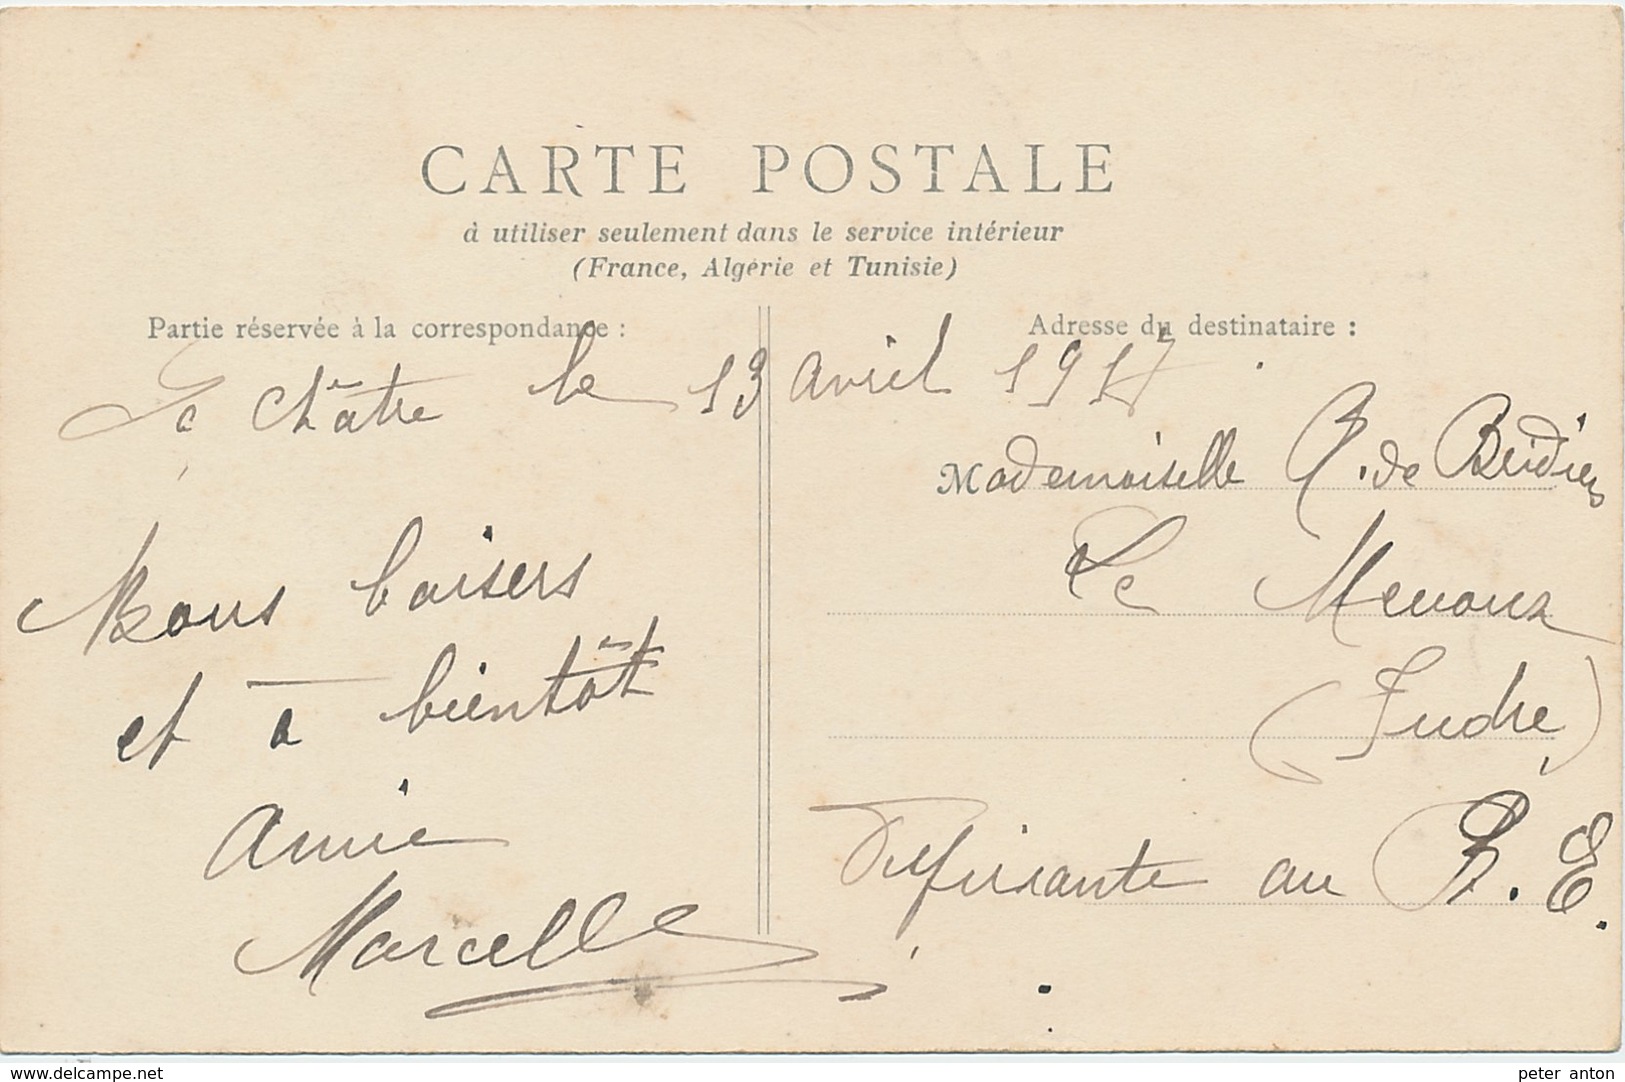 CARTE POSTALE
à utiliser seulement dans le service intérieur
(France, Algérie et Tunisie)
Partie réservée à la correspondance :
La Châtre le 13 avril 191
Bons baisers
et à bientôt
Amie
Marcelle
Adresse du destinataire :
Mademoiselle de
Le Menoux
(Indre)
au B. E.
www.delcampe.net
peter anton